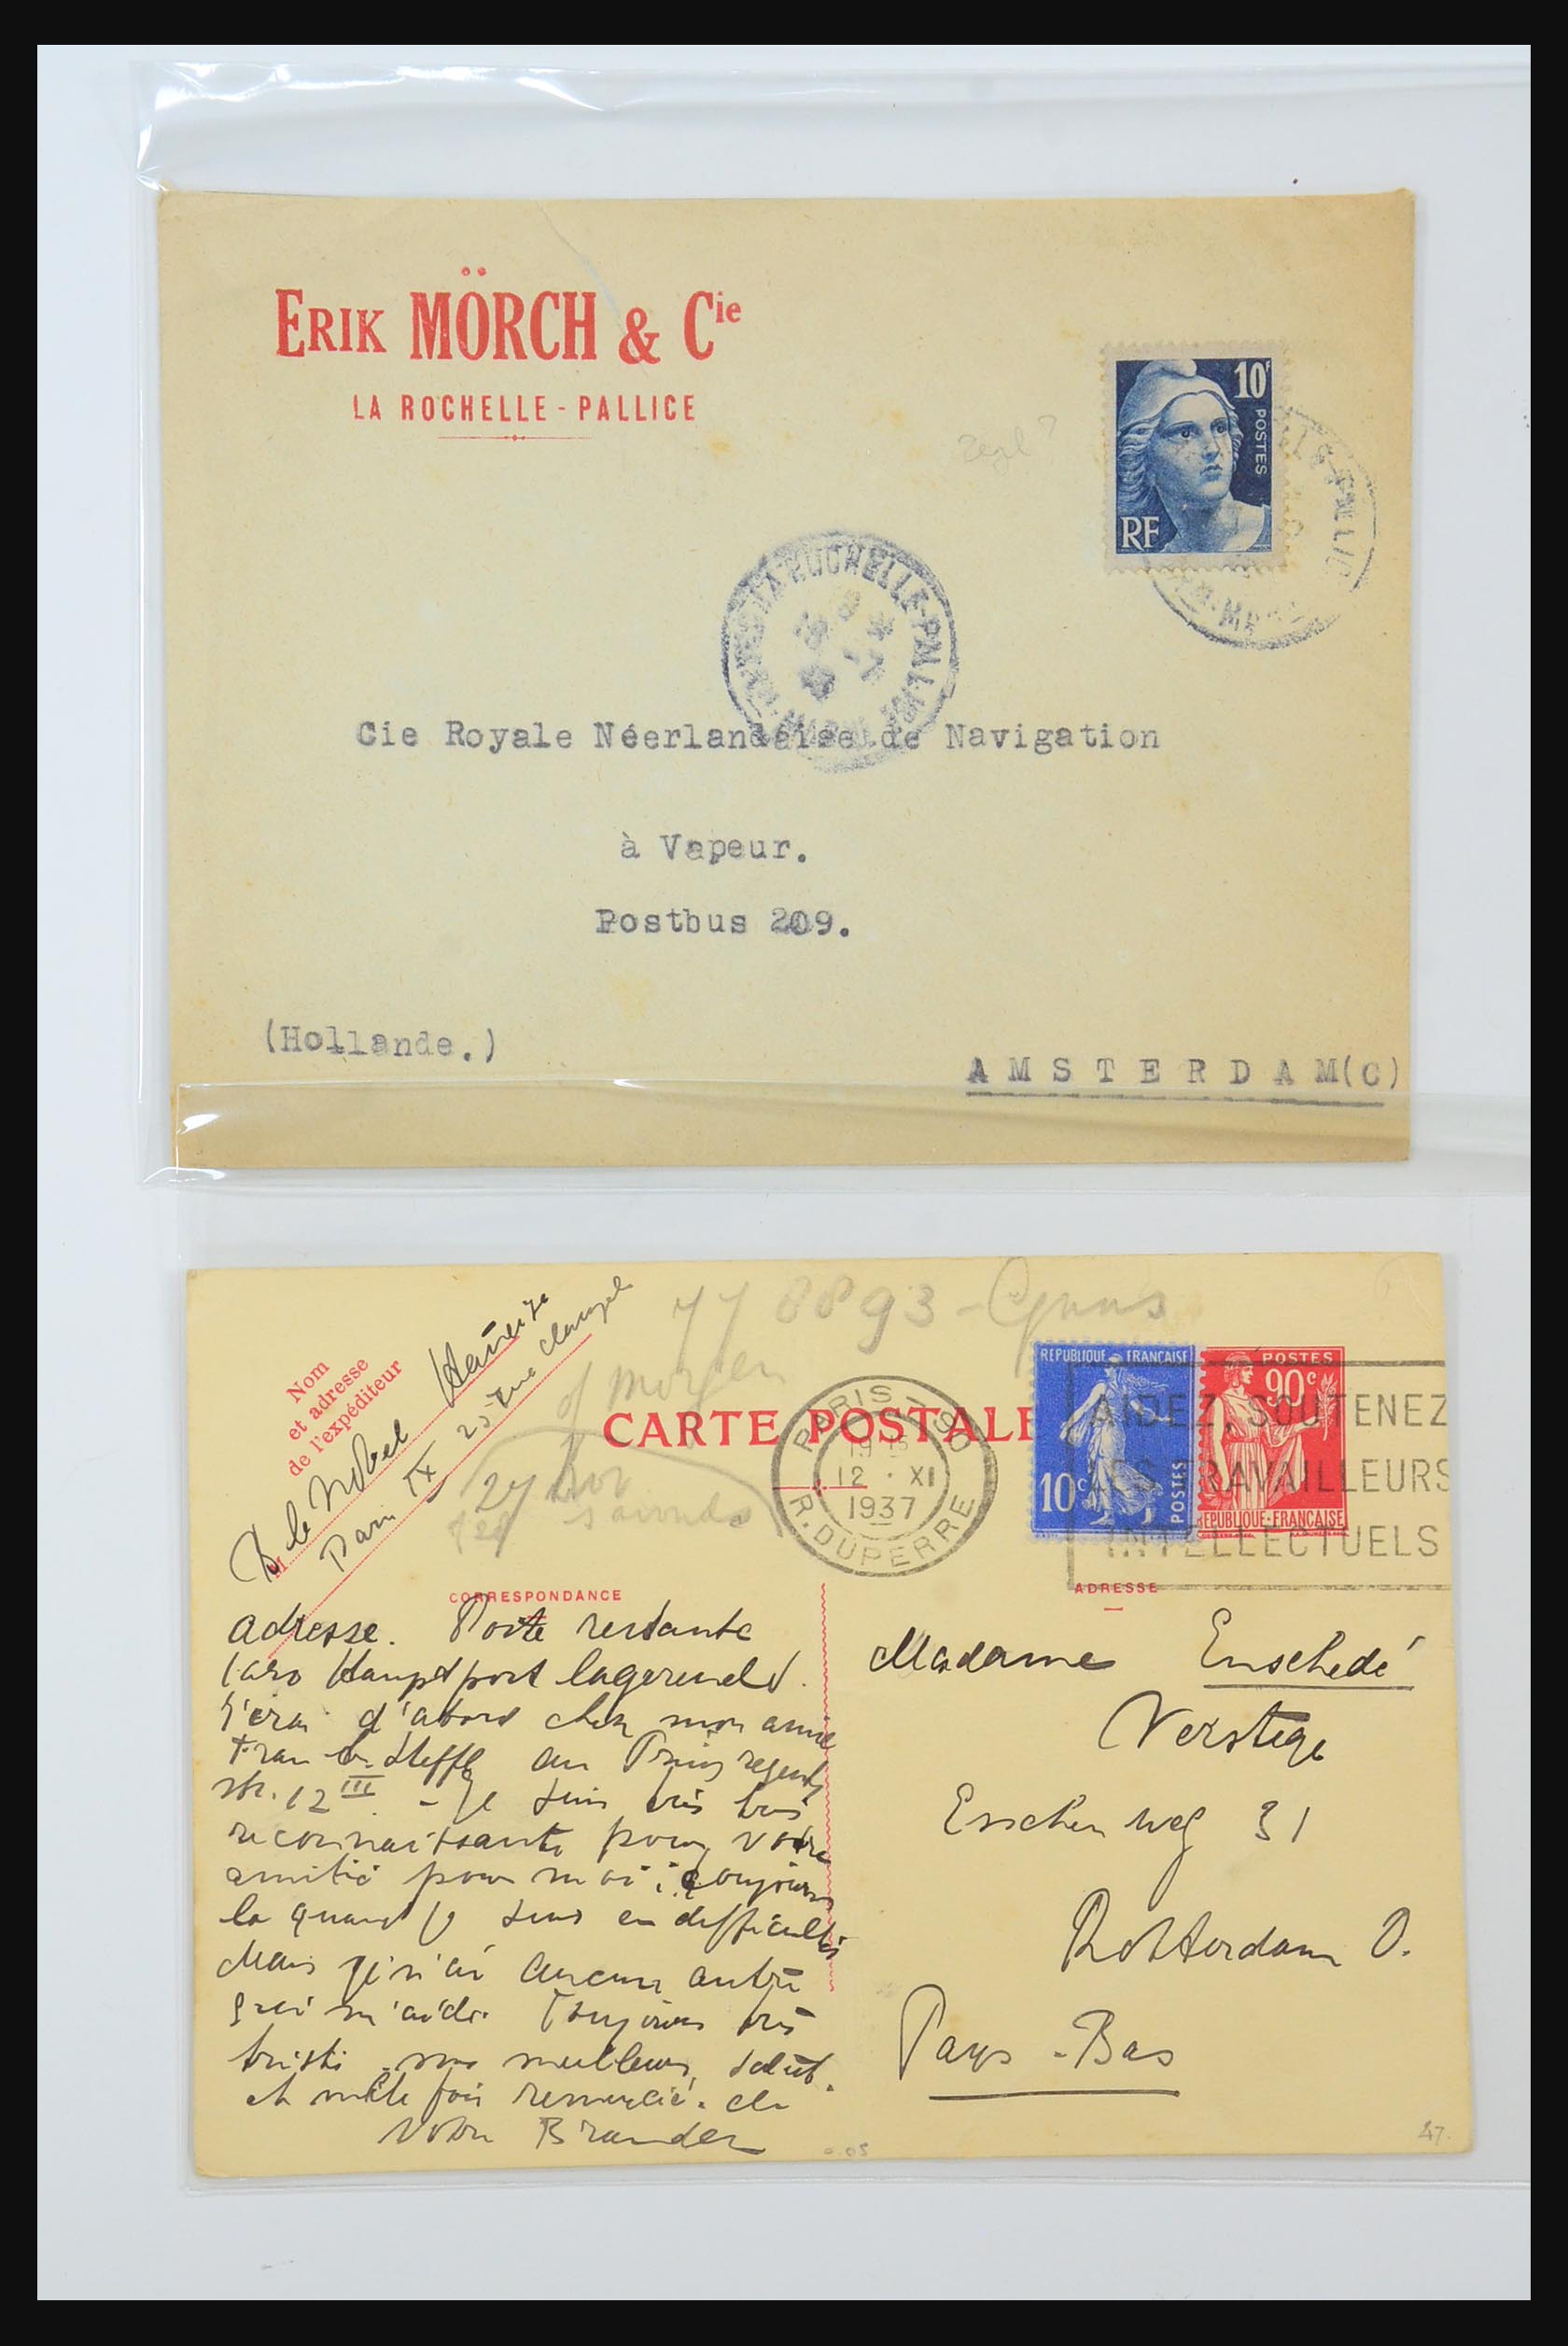 ERIK MÖRCH & Cie
LA ROCHELLE - PALLICE
10F
POSTES
RF
LA ROCHELLE-PALLICE
Cie Royale Néerlandaise de Navigation
à Vapeur.
Postbus 209.
(Hollande.)
AMSTERDAM(C)
778893 -
morgen
Nom
et adresse
de l'expéditeur
Paris IX 25 rue
CARTE POSTALE
27 Nov
PARIS - 90
12 · XI
1937
R. DUPERRE
REPUBLIQUE FRANÇAISE
10c
POSTES
POSTES
90c
REPUBLIQUE-FRANÇAISE
AIDEZ, SOUTENEZ
LES TRAVAILLEURS
INTELLECTUELS
CORRESPONDANCE
ADRESSE
adresse. Poste restante
Hauptpost lagernd.
J'irai d'abord chez mon amie
Frau Steffl am Prinzregent
str. 12 III. - Je suis très très
reconnaissante pour votre
amitié pour moi: toujours
là quand je suis en difficultés
Mais je n'ai aucun autre
qui m'aide. Toujours très
triste mes meilleurs salut.
et mille fois remercié. de
Votre Brander
Madame Enschedé
Verstege
Esschen weg 31
Rotterdam O.
Pays-Bas
0.05
47.